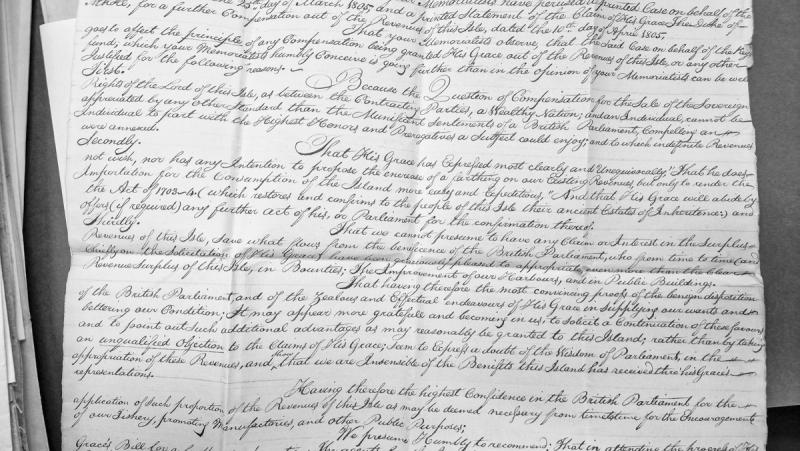 Memorialists have perused a printed Case on behalf of the
Athole, for a further Compensation out of the Revenues of this Isle, dated the 10th day of April 1805.
the 25th day of March 1805, and a printed Statement of the Claim of His Grace The Duke of
That your Memorialists observe that the said Case on behalf of the
goes to affect the principle of any Compensation being granted His Grace out of the Revenues of this Isle, or any other
fund, which your Memorialists humbly Conceive is going further than in the opinion of your Memorialists can be well
Justified for the following reasons.
First. Because the Question of Compensation for the Sale of the Sovereign
Rights of the Lord of this Isle, as between the Contracting Parties, a Wealthy Nation; and an Individual, cannot be
appreciated by any other Standard than the Munificent Sentiments of a British Parliament, Compelling an
Individual to part with the Highest Honors and Prerogatives a Subject could enjoy; and to which indefinite Revenues
were annexed.
Secondly. That His Grace has Expressed most clearly and Unequivocally, "That he does
not wish, nor has any Intention to propose the encrease of a farthing on our Existing Revenues, but only to render the
Importation for the Consumption of the Island more easy and Expeditious," And that His Grace will abide by
the Act of 1703-4 (which restores and confirms to the people of this Isle their ancient Estates of Inheritance;) and
offers (if required) any further act of his, or Parliament for the confirmation thereof.
Thirdly. That we cannot presume to have any Claim or Interest in the Surplus
Revenues of this Isle, save what flows from the beneficence of the British Parliament, who from time to time (and
Chiefly on the Solicitation of His Grace) have been graciously pleased to appropriate, even more than the Clear
Revenue Surplus of this Isle, in Bounties; The Improvement of our Harbours, and in Public Buildings.
That having therefore the most convincing proofs of the benign disposition
of the British Parliament, and of the Zealous and Effectual endeavours of His Grace in Supplying our wants and
bettering our Condition; It may appear more grateful and becoming in us, to Solicit a Continuation of these favours
and to point out Such additional advantages as may reasonably be granted to this Island; rather than by taking
an unqualified Objection to the Claims of His Grace; Seem to Express a doubt of the Wisdom of Parliament, in the
appropriation of these Revenues, and that we are Insensible of the Benefits this Island has received thro' his Grace's
representations.
Having therefore the highest Confidence in the British Parliament for the
application of Such proportion of the Revenues of this Isle as may be deemed necessary from time to time for the Encouragement
of our Fishery, promoting Manufactories, and other Public Purposes;
We presume Humbly to recommend; That in attending the progress of His
Grace's Bill for a